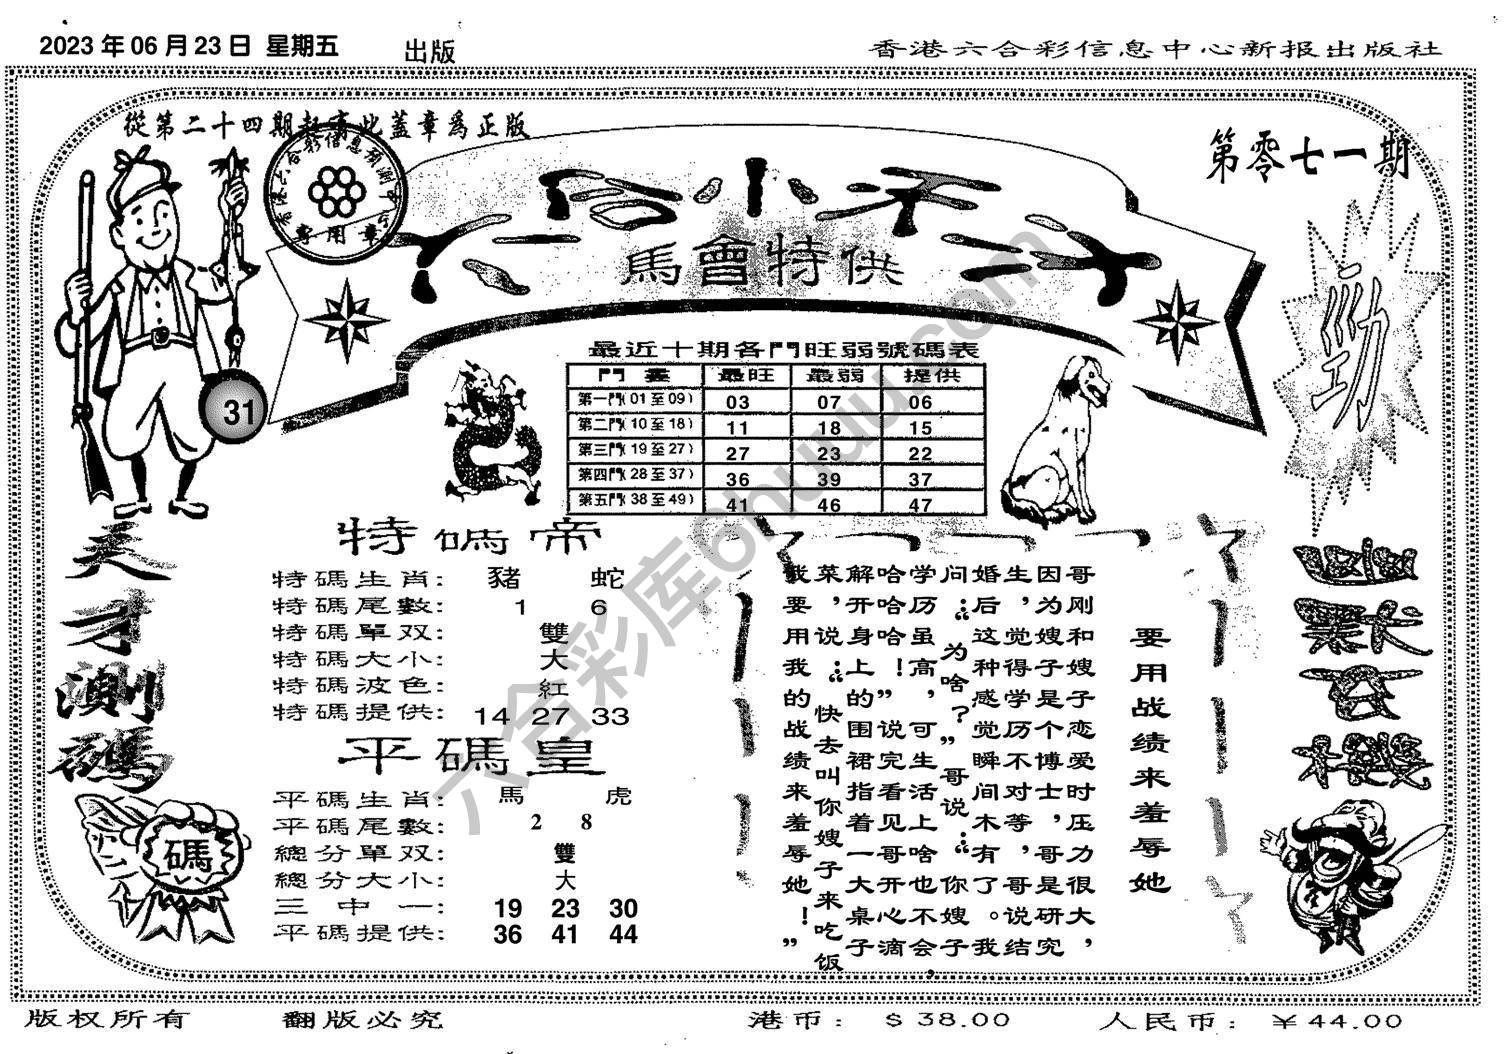 2023年06月23日 星期五
出版
香港六合彩信息中心新报出版社
從第二十四期起有此蓋章爲正版
第零七一期
專用章
六合小天才
馬會特供
勁
31
最近十期各門旺弱號碼表
門 最旺 最弱 提供
第一門(01至09) 03 07 06
第二門(10至18) 11 18 15
第三門(19至27) 27 23 22
第四門(28至37) 36 39 37
第五門(38至49) 41 46 47
天才測碼
碼
特碼帝
特碼生肖: 豬 蛇
特碼尾數: 1 6
特碼單双: 雙
特碼大小: 大
特碼波色: 紅
特碼提供: 14 27 33
平碼皇
平碼生肖: 馬 虎
平碼尾數: 2 8
總分單双: 雙
總分大小: 大
三中一: 19 23 30
平碼提供: 36 41 44
要用战绩来羞辱她
哥刚和嫂子恋爱时压力很大，
因为嫂子是个博士，哥是研究
生，觉得学历不对等，哥说结
婚后这种感觉瞬间木有了。我
问：“为啥？”哥说：“你嫂子
学历虽高，可生活上啥也不会，
哈哈哈！”说完看见哥开心滴
解开身上的围裙指着一大桌子
菜，说：“快去叫你嫂子来吃饭
我要用我的战绩来羞辱她！”
幽默玄機
版权所有 翻版必究
港币: $38.00 人民币: ￥44.00
六合彩库6huuu.com